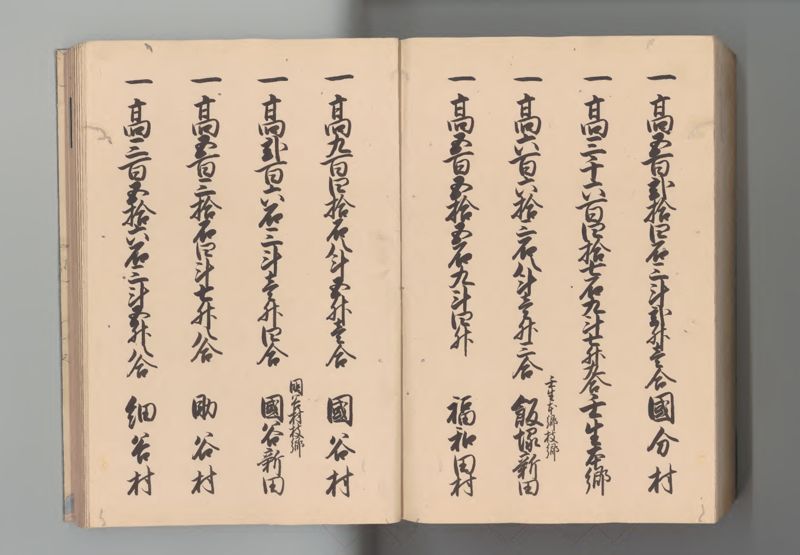 一高五百弐拾四石三斗弐升壱合國分村
一高三千六百四拾七石九斗七升九合壬生本郷
壬生本郷枝郷
一高六百六拾三石八斗壱升三合飯塚新田
一高五百五拾五石九斗四升福和田村
一高九百四拾石八斗五升壱合國谷村
國谷村枝郷
一高弐百六石三斗壱升四合國谷新田
一高五百三拾石四斗七升八合助谷村
一高三百五拾六石三斗五升八合細谷村